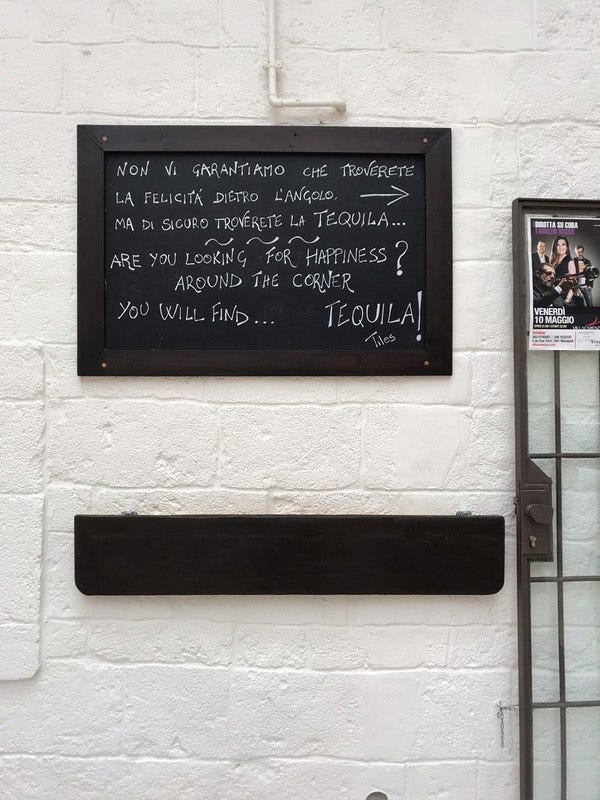 NON VI GARANTIAMO CHE TROVERETE
LA FELICITÁ DIETRO L'ANGOLO,
MA DI SICURO TROVERETE LA TEQUILA...
ARE YOU LOOKING FOR HAPPINESS?
AROUND THE CORNER
YOU WILL FIND... TEQUILA!
Tiles
DIROTTA SU CUBA
VENERDÌ
10 MAGGIO